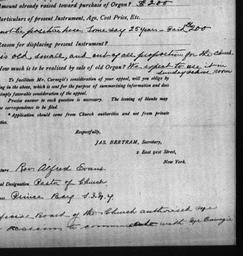 Amount already raised toward purchase of Organ? $200
Particulars of present Instrument, Age, Cost Price, Etc.
not be positive here. Some say 25 years - Paid $200
Reason for displacing present Instrument?
is old, small, and out of all proportion for the Church.
How much is to be realised by sale of old Organ? We expect to use it in
Sunday school room
To facilitate Mr. Carnegie's consideration of your appeal, will you oblige by
ing in the above, which is sent for the purpose of summarized information and does
imply favorable consideration of the appeal.
Precise answer to each question is necessary. The issuing of blanks may
correspondence to be ignored.
* Application should come from Church authorities and not from private
viduals.
Respectfully,
JAS. BERTRAM, Secretary,
2 East 91st Street,
New York.
Rev. Alfred Evans
Designation, Pastor of Church
Prince Bay S. I. N. Y.
Board of the Church authorised
with Mr Carnegie